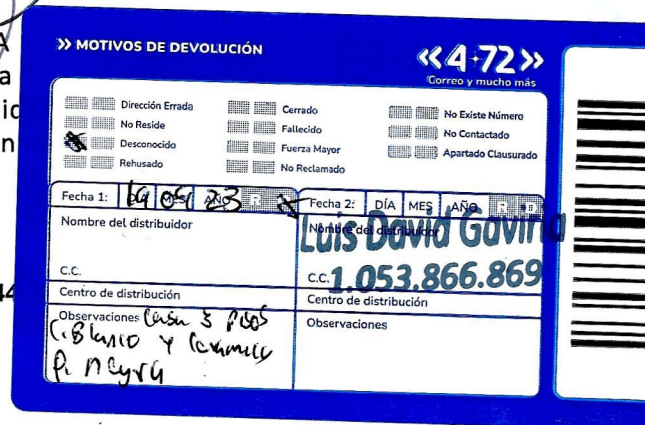 A
a
id
n
44
>> MOTIVOS DE DEVOLUCIÓN
<<4-72>>
Correo y mucho más
Dirección Errada
No Reside
Desconocido
Rehusado
Cerrado
Fallecido
Fuerza Mayor
No Reclamado
No Existe Número
No Contactado
Apartado Clausurado
Fecha 1: DÍA MES AÑO R D
09 23
Nombre del distribuidor
C.C.
Centro de distribución
Observaciones Casa 3 Pisos
C. Blanco y
P. Negra
Fecha 2: DÍA MES AÑO R D
Nombre del distribuidor
Luis David Gaviria
C.C. 1.053.866.869
Centro de distribución
Observaciones